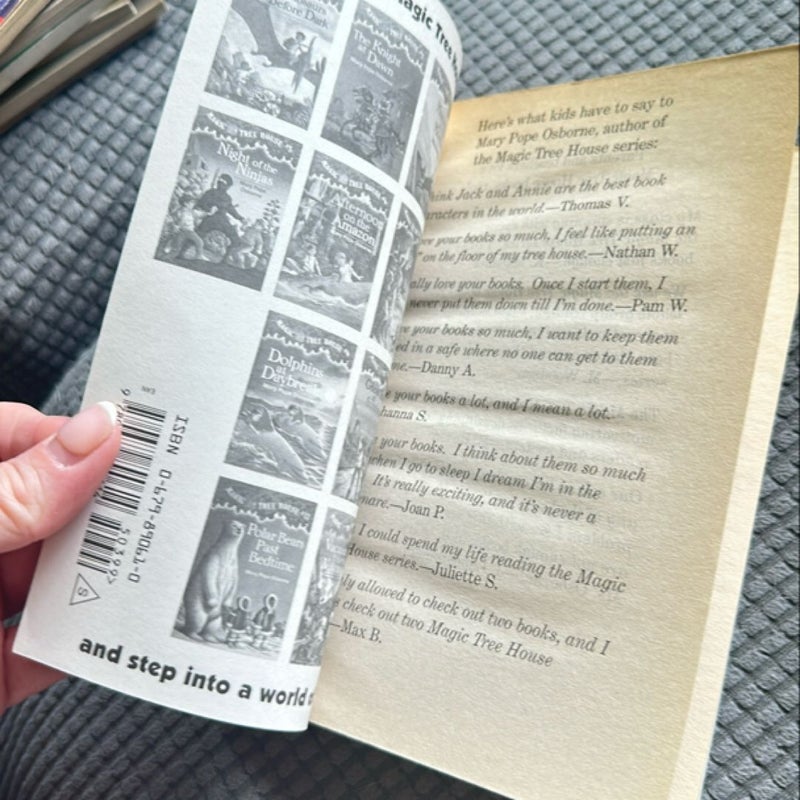 Magic Tree
Before Dark
The Knight
at Dawn
MAGIC TREE HOUSE
Night of the
Ninjas
MAGIC TREE HOUSE
Afternoon
on the
Amazon
MAGIC TREE HOUSE
Dolphins
at
Daybreak
MAGIC TREE HOUSE
Polar Bears
Past
Bedtime
EAN
ISBN 0-679-89061-0
50399>
S
and step into a world
Here's what kids have to say to
Mary Pope Osborne, author of
the Magic Tree House series:
Jack and Annie are the best book
in the world.—Thomas V.
your books so much, I feel like putting an
on the floor of my tree house.—Nathan W.
love your books. Once I start them, I
never put them down till I'm done.—Pam W.
your books so much, I want to keep them
in a safe where no one can get to them
—Danny A.
your books a lot, and I mean a lot.
S.
your books. I think about them so much
when I go to sleep I dream I'm in the
It's really exciting, and it's never a
—Joan P.
I could spend my life reading the Magic
House series.—Juliette S.
allowed to check out two books, and I
check out two Magic Tree House
—Max B.